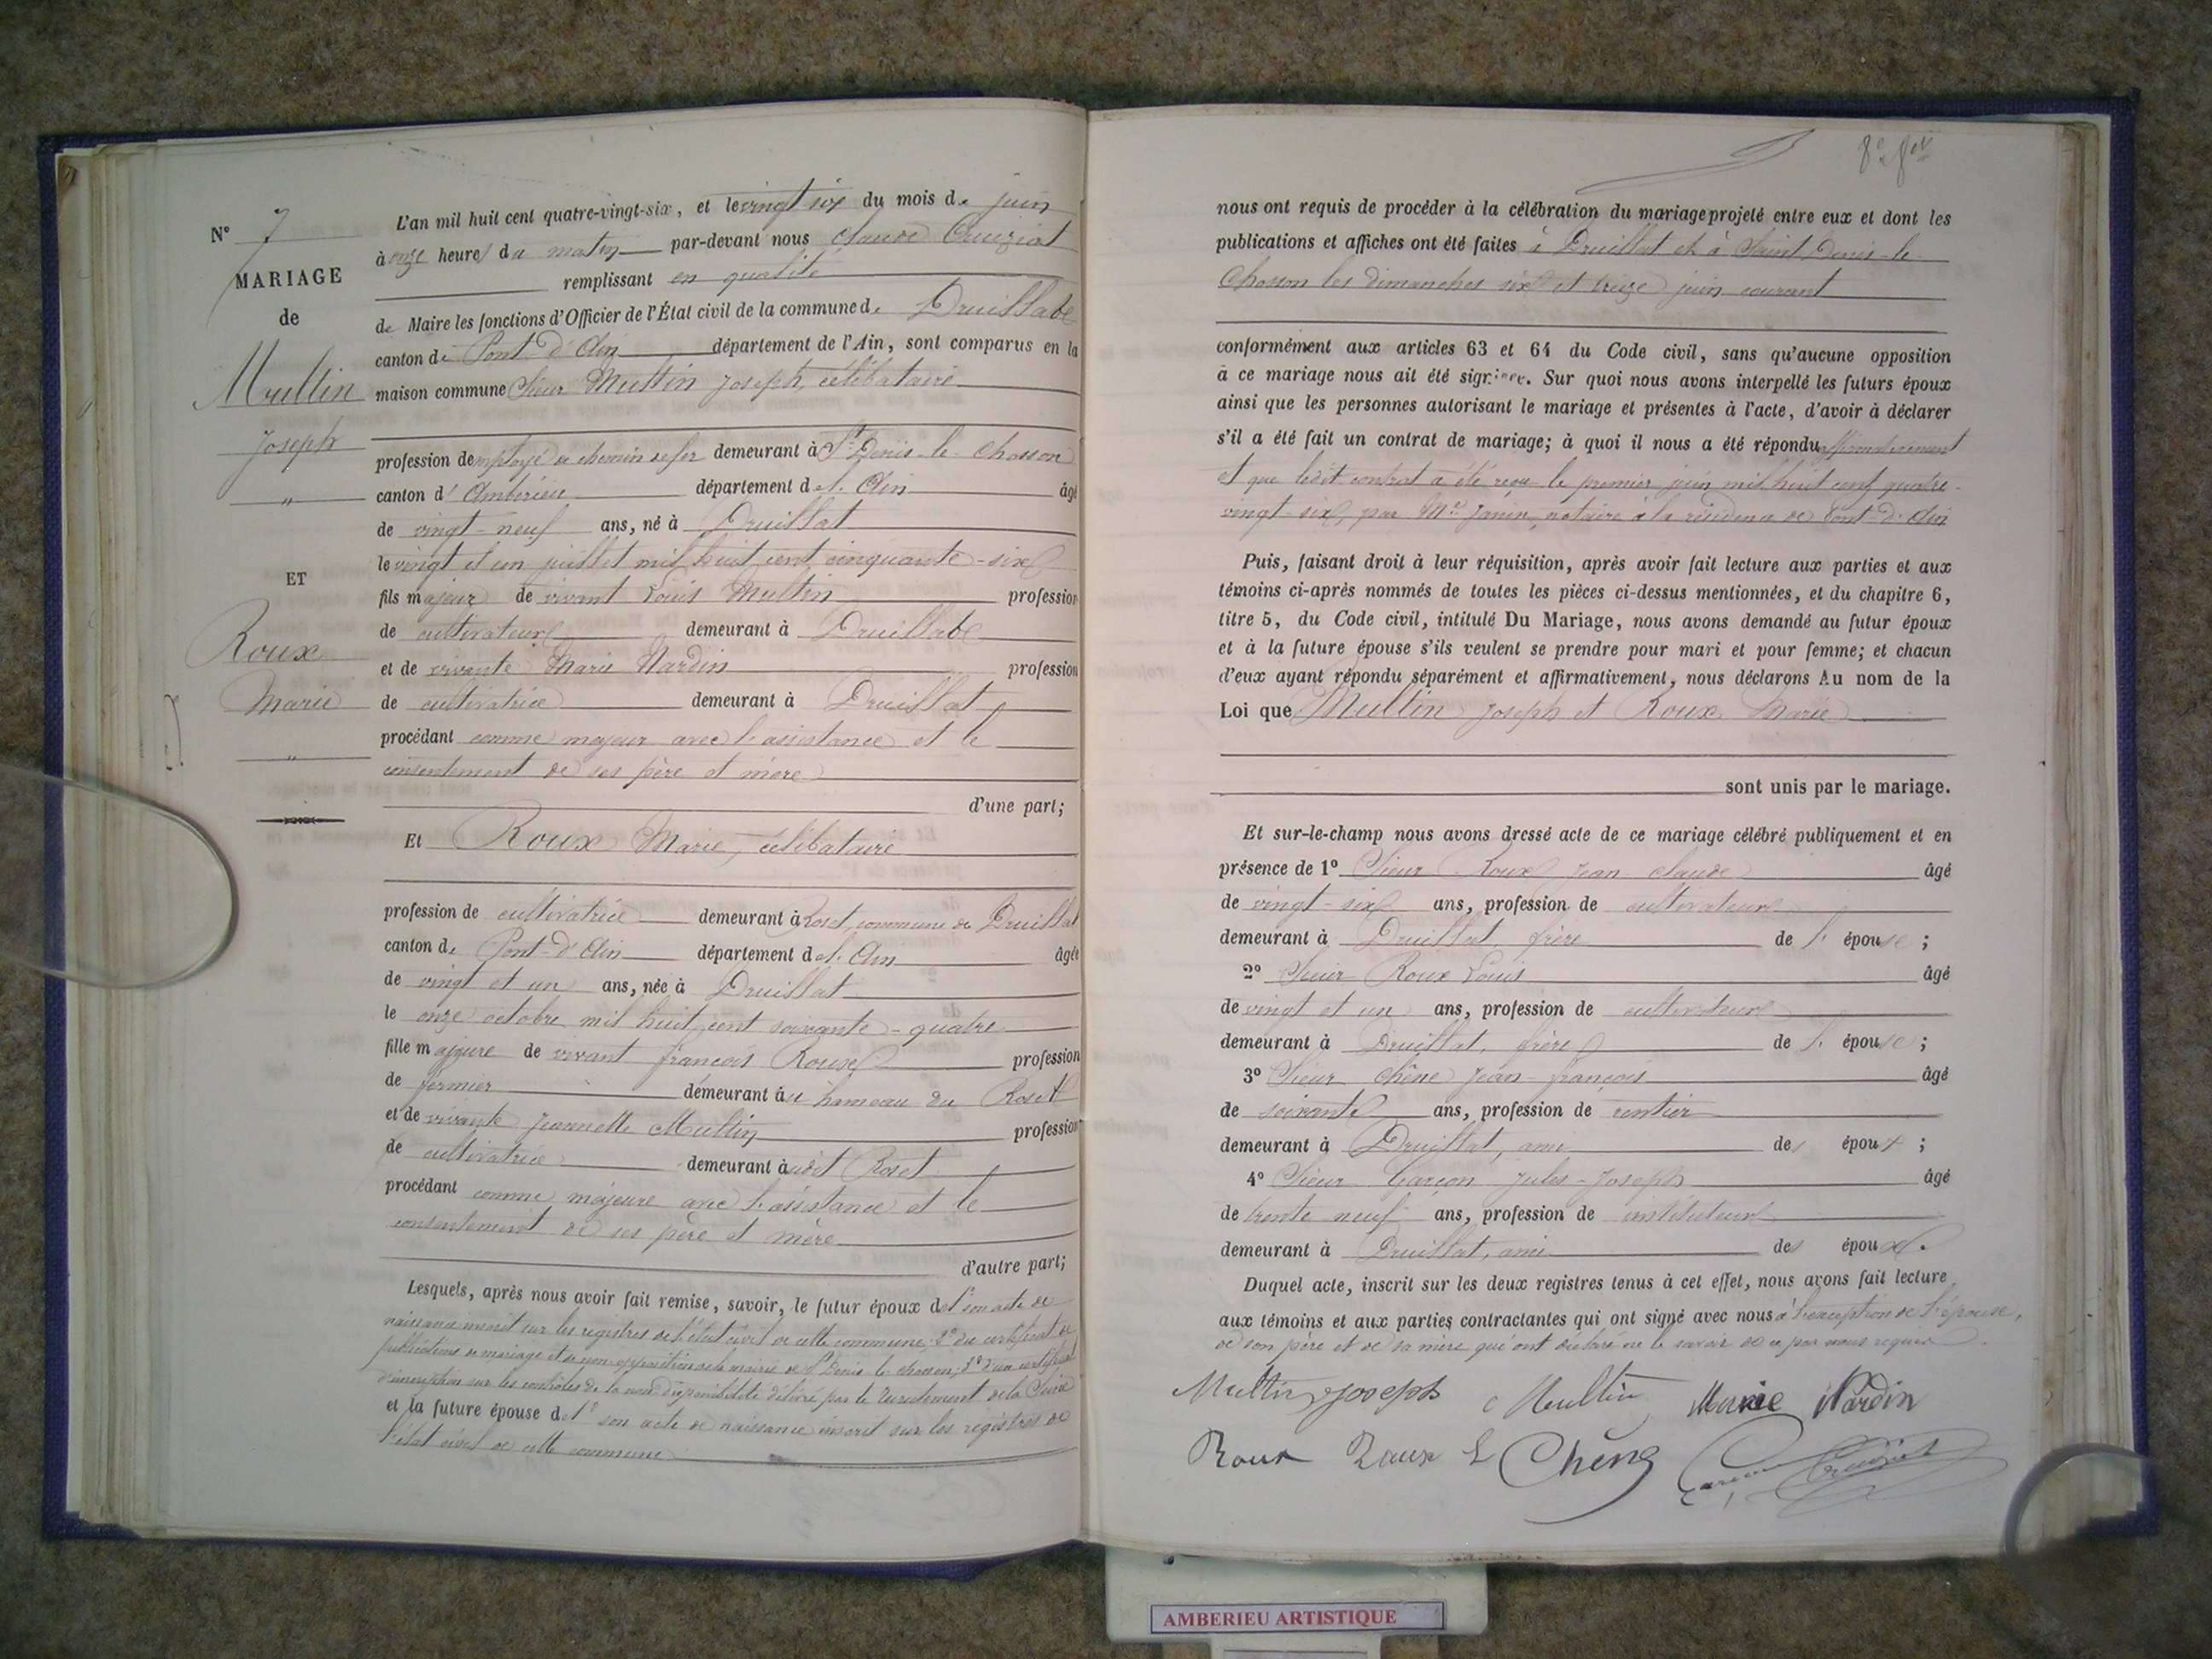 N° 7
MARIAGE
de
Mullin
Joseph
"
ET
Roux
Marie
"
L'an mil huit cent quatre-vingt-six, et le vingt six du mois de juin
à onze heures du matin par-devant nous Claude Cruiziat
remplissant en qualité
de Maire les fonctions d'Officier de l'État civil de la commune de Druillat
canton de Pont-d'Ain département de l'Ain, sont comparus en la
maison commune Sieur Mullin Joseph, célibataire
profession d'employé de chemin de fer demeurant à St Denis-le-Chosson
canton d'Ambérieu département de l'Ain âgé
de vingt-neuf ans, né à Druillat
le vingt et un juillet mil huit cent cinquante-six
fils majeur de vivant Louis Mullin profession
de cultivateur demeurant à Druillat
et de vivante Marie Nardin profession
de cultivatrice demeurant à Druillat
procédant comme majeur avec l'assistance et le
consentement de ses père et mère
d'une part;
Et Roux Marie, célibataire
profession de cultivatrice demeurant à Roset, commune de Druillat
canton de Pont-d'Ain département de l'Ain âgée
de vingt et un ans, née à Druillat
le onze octobre mil huit cent soixante-quatre
fille majeure de vivant françois Roux profession
de fermier demeurant au hameau du Roset
et de vivante Jeannette Mullin profession
de cultivatrice demeurant audit Roset
procédant comme majeure avec l'assistance et le
consentement de ses père et mère
d'autre part;
Lesquels, après nous avoir fait remise, savoir, le futur époux de 1° son acte de
naissance inscrit sur les registres de l'état civil de cette commune, 2° du certificat de
publications de mariage et de non-opposition de la mairie de St Denis le Chosson; 3° d'un certificat
d'inscription sur les contrôles de la non disponibilité délivré par le recrutement de la Seine
et la future épouse de 1° son acte de naissance inscrit sur les registres de
l'état civil de cette commune
nous ont requis de procéder à la célébration du mariage projeté entre eux et dont les
publications et affiches ont été faites à Druillat et à Saint Denis-le-
Chosson les dimanches six et treize juin courant
conformément aux articles 63 et 64 du Code civil, sans qu'aucune opposition
à ce mariage nous ait été signifiée. Sur quoi nous avons interpellé les futurs époux
ainsi que les personnes autorisant le mariage et présentes à l'acte, d'avoir à déclarer
s'il a été fait un contrat de mariage; à quoi il nous a été répondu affirmativement
et que ledit contrat a été reçu le premier juin mil huit cent quatre-
vingt-six, par Me Janin, notaire à la résidence de Pont-d'Ain
Puis, faisant droit à leur réquisition, après avoir fait lecture aux parties et aux
témoins ci-après nommés de toutes les pièces ci-dessus mentionnées, et du chapitre 6,
titre 5, du Code civil, intitulé Du Mariage, nous avons demandé au futur époux
et à la future épouse s'ils veulent se prendre pour mari et pour femme; et chacun
d'eux ayant répondu séparément et affirmativement, nous déclarons Au nom de la
Loi que Mullin Joseph et Roux Marie
sont unis par le mariage.
Et sur-le-champ nous avons dressé acte de ce mariage célébré publiquement et en
présence de 1° Sieur Roux Jean Claude âgé
de vingt-six ans, profession de cultivateur
demeurant à Druillat, frère de l'épouse;
2° Sieur Roux Louis âgé
de vingt et un ans, profession de cultivateur
demeurant à Druillat, frère de l'épouse;
3° Sieur Chêne Jean-françois âgé
de soixante ans, profession de rentier
demeurant à Druillat, ami des époux;
4° Sieur Garçon Jules-Joseph âgé
de trente neuf ans, profession de instituteur
demeurant à Druillat, ami des époux.
Duquel acte, inscrit sur les deux registres tenus à cet effet, nous avons fait lecture
aux témoins et aux parties contractantes qui ont signé avec nous à l'exception de l'épouse,
de son père et de sa mère qui ont déclaré ne le savoir de ce par nous requis.
Mullin Joseph Mullin Marie Nardin
Roux Roux L Chêne Garçon Cruiziat
AMBERIEU ARTISTIQUE